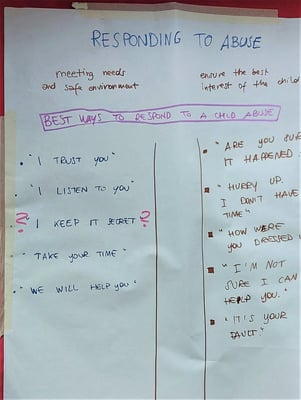 RESPONDING TO ABUSE
meeting needs
and safe environment
ensure the best
interest of the child
BEST WAYS TO RESPOND TO A CHILD ABUSE
"I TRUST YOU"
"I LISTEN TO YOU"
? I KEEP IT SECRET ?
"TAKE YOUR TIME"
"WE WILL HELP YOU"
"ARE YOU SURE
IT HAPPENED
"HURRY UP.
I DON'T HAVE
TIME"
"HOW WERE
YOU DRESSED
"I'M NOT
SURE I CAN
HELP YOU."
"IT'S YOUR
FAULT."